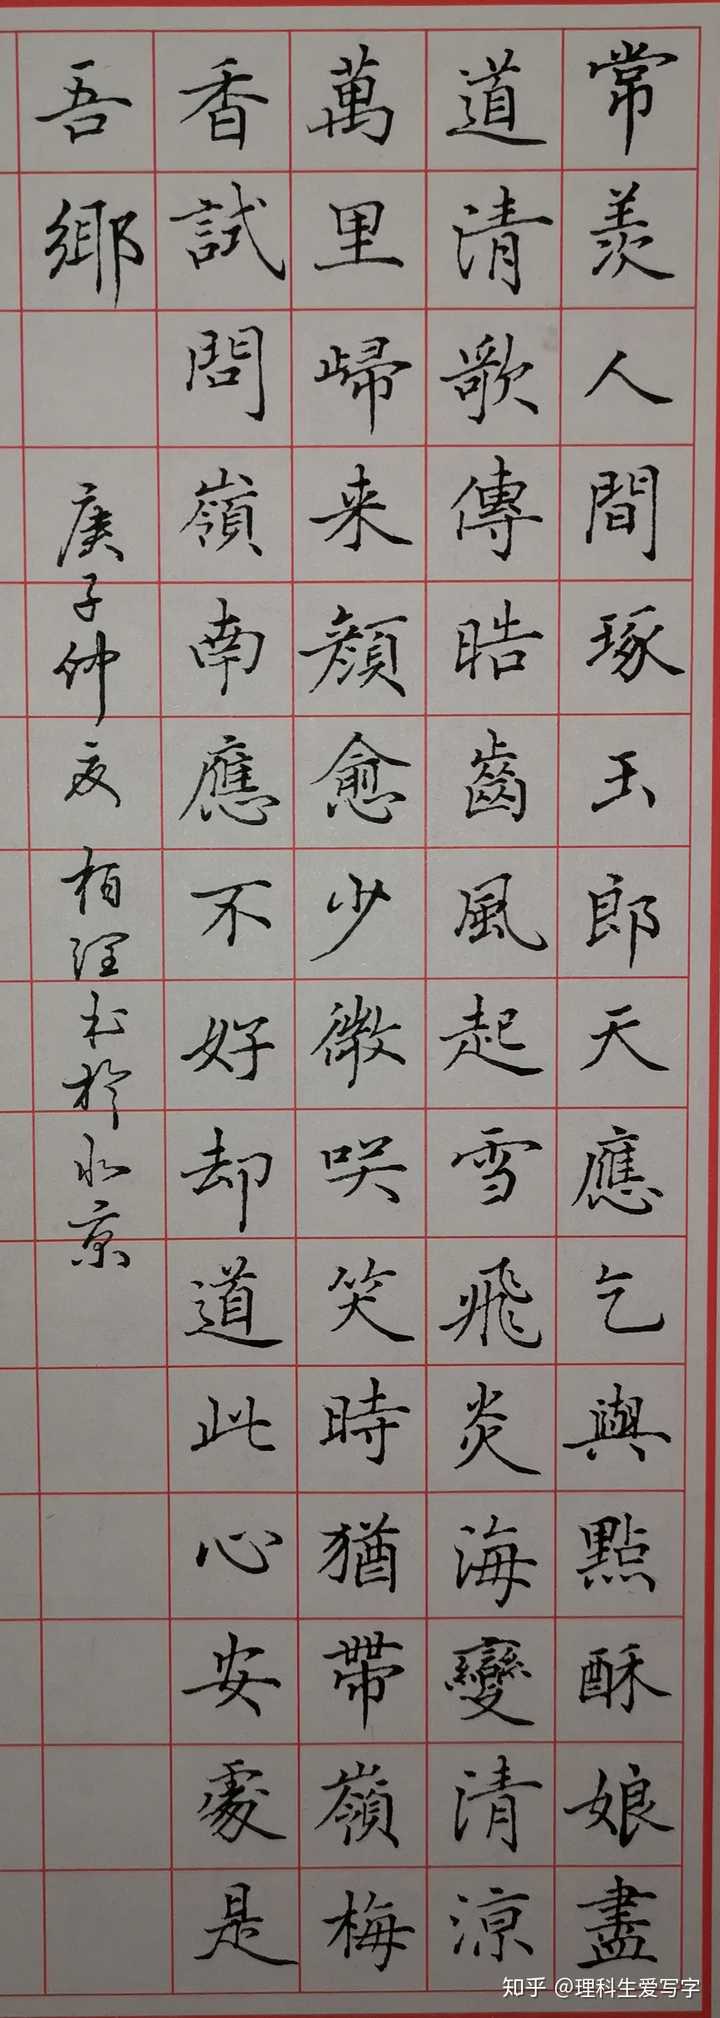 常羨人間琢玉郎天應乞與點酥娘盡
道清歌傳晧齒風起雪飛炎海變清涼
萬里歸来顏愈少微咲笑時猶帶嶺梅
香試問嶺南應不好却道此心安處是
吾鄉
庚子仲夏 柏书於北京
知乎 @理科生爱写字